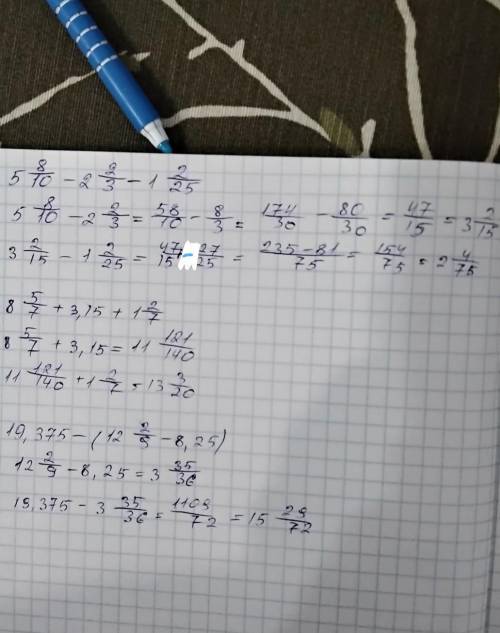 5 8/10 - 2 2/3 - 1 2/25
5 8/10 - 2 2/3 = 58/10 - 8/3 = 174/30 - 80/30 = 47/15 = 3 2/15
3 2/15 - 1 2/25 = 47/15 - 27/25 = 235-81/75 = 154/75 = 2 4/75
8 5/7 + 3,15 + 1 2/7
8 5/7 + 3,15 = 11 121/140
11 121/140 + 1 2/7 = 13 3/20
19,375 - (12 2/9 - 8,25)
12 2/9 - 8,25 = 3 35/36
19,375 - 3 35/36 = 1109/72 = 15 29/72